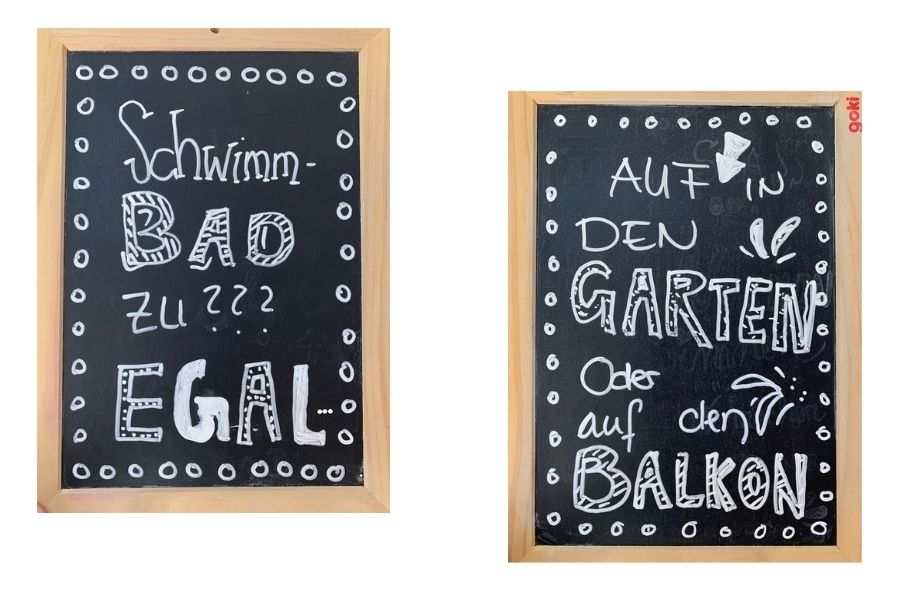 Schwimm-
BAD
ZU ???
EGAL...
goki
AUF IN
DEN
GARTEN
Oder
auf den
BALKON